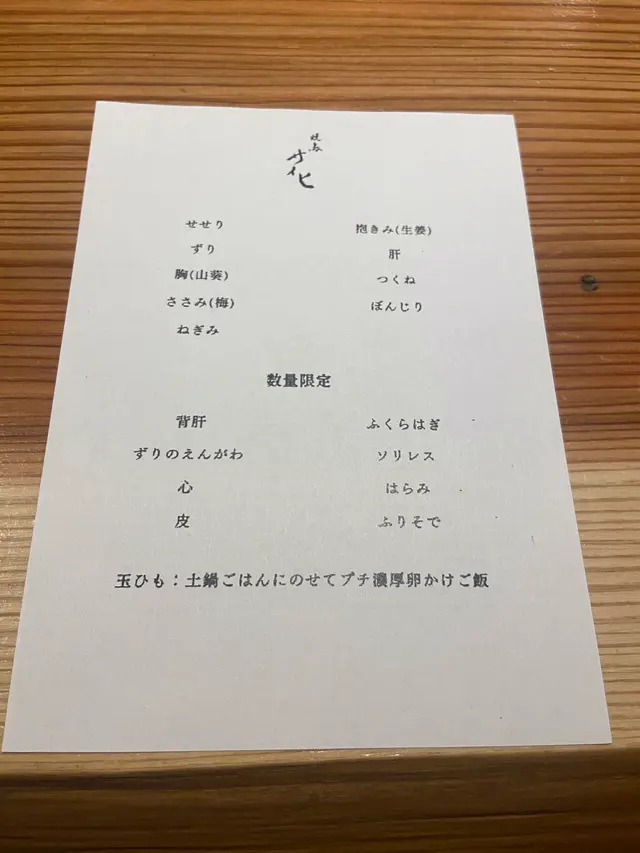 焼鳥
せせり
ずり
胸(山葵)
ささみ(梅)
ねぎみ
抱きみ(生姜)
肝
つくね
ぼんじり
数量限定
背肝
ずりのえんがわ
心
皮
ふくらはぎ
ソリレス
はらみ
ふりそで
玉ひも：土鍋ごはんにのせてプチ濃厚卵かけご飯